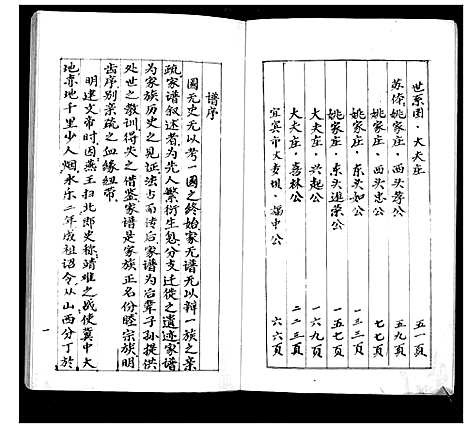 世系图·大夫庄 五一頁
苏徐姚家庄·西头孝公 五九頁
姚家庄·西头忠公 七七頁
姚家庄·东头如公 一三三頁
姚家庄·东头进荣公 一五七頁
大夫庄·兴起公 一六九頁
大夫庄·喜林公 二二三頁
宜宾市大麦坝·福中公 六六頁
谱序
國无史无以考一國之终始家无谱无以辩一族之亲
疏家谱叙述者为先人繁衍生息分支迁徙之遗迹家谱
为家族历史之见证法占而传后家谱为后輩子孙提供
处世之教训得失之借鉴家谱是家族正名份睦宗族明
齿序别亲疏之血缘纽带
明建文帝时因燕王扫北即史称靖难之战使冀中大
地赤地千里少人烟永乐二年成祖诏令从山西分丁於
一